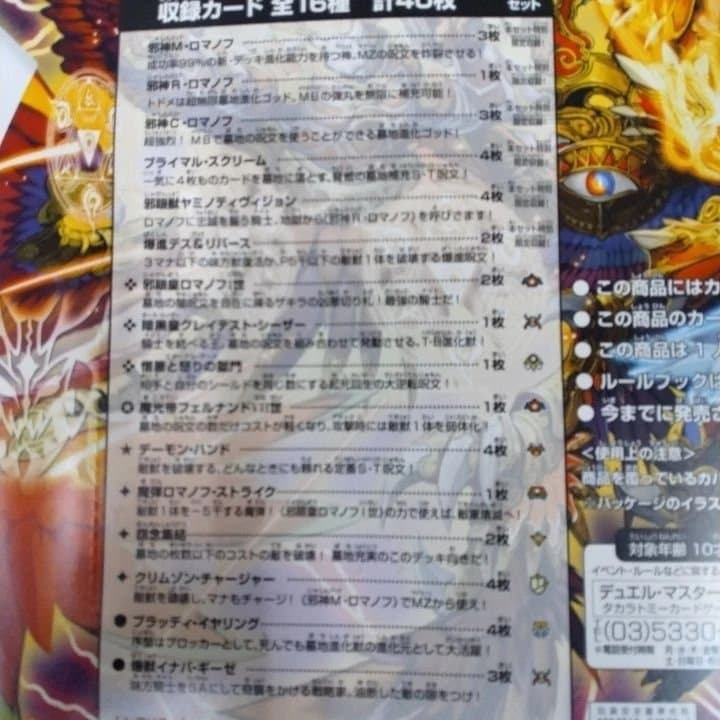 収録カード 全16種 計40枚
セット
邪神M・ロマノフ 3枚 本セット特別限定収録!
成功率99%の新・デッキ進化能力を持つ神。MZの呪文を炸裂させる!
邪神R・ロマノフ 1枚 本セット特別限定収録!
トドメは超無限墓地進化ゴッド。MBの弾丸を無限に補充可能!
邪神C・ロマノフ 3枚 本セット特別限定収録!
超強烈! MBで墓地の呪文を使うことができる墓地進化ゴッド!
プライマル・スクリーム 4枚 本セット特別限定収録!
一気に4枚ものカードを墓地に落とす、驚愕の墓地補充S・T呪文!
邪眼獣ヤミノディヴィジョン 4枚 本セット特別限定収録!
ロマノフに忠誠を誓う騎士。地獄から《邪神R・ロマノフ》を呼びさます!
爆進デス&リバース 2枚 本セット特別限定収録!
3マナ以下の味方獣復活か、P5千以下の敵獣1体を破壊する爆進呪文!
邪眼皇ロマノフI世 2枚
墓地の暗黒文を自在に操るザキラの凶悪切り札!最強の騎士だ!
暗黒皇グレイテスト・シーザー 1枚
騎士を統べる王。墓地の呪文を組み合わせて発動させる、T・B進化獣!
憎悪と怒りの獄門 1枚
相手と自分のシールドを同じ数にする起死回生の大逆転呪文!
魔光帝フェルナンドVII世 1枚
墓地の呪文の数だけコストが軽くなり、攻撃時には敵獣1体を弱体化!
デーモン・ハンド 4枚
敵獣を破壊する。どんなときにも頼れる定番S・T呪文!
魔弾ロマノフ・ストライク 1枚
敵獣1体を-5千する魔弾!《邪眼皇ロマノフI世》の力で使えば、敵軍壊滅へ!
怨念集結 2枚
墓地の枚数以下のコストの敵を破壊! 墓地充実のこのデッキ向きだ!
クリムゾン・チャージャー 4枚
敵獣を破壊し、マナもチャージ!《邪神M・ロマノフ》でMZから使え!
ブラッディ・イヤリング 4枚
序盤はブロッカーとして、死んでも墓地進化獣の進化元として大活躍!
爆獣イナバ・ギーゼ 3枚
味方騎士をSAにして奇襲をかける戦略家。油断した敵の隙をつけ!
●この商品にはカ
●この商品のカー
●この商品は1人
●ルールブックに
●今までに発売さ
<使用上の注意>
商品を覆っているカバ
※パッケージのイラス
対象年齢 10
イベント・ルールなどに関する
デュエル・マスター
タカラトミーカードゲ
TEL(03)5330
電話受付時間 月・水・木・金曜